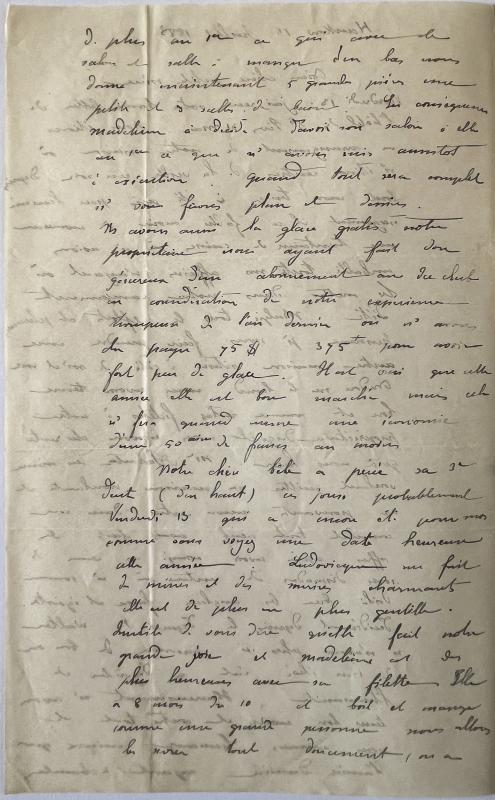 de plus au 1er ce qui avec le
salon et salle à manger d'en bas nous
donne maintenant 5 grandes pièces une
petite et 3 salles de bain. En conséquence
Madeleine a décidé d'avoir son salon à elle
au 1er ce que n'avons mis aussitôt
à exécution. quand tout sera complet
je vous ferais plan et dessins.
Ns avons aussi la glace gratis notre
propriétaire nous ayant fait don
généreux d'un abonnement au Ice club
en considération de notre expérience
de l'an dernier où n' avons
du payer 75 $ 375 f pour avoir
fort peu de glace. Il est vrai que cette
année elle est bon marché mais cela
n' fera quand même une économie
d'une 50aine de francs au moins
Notre chère bébé a percé sa 3e
dent (d'en haut) ces jours probablement
Vendredi 13 qui a encore été pour nous
comme vous voyez une date heureuse
cette année. Ludovicque ns fait
de mines et des charmant
elle est de plus en plus gentille.
Inutile de vous dire qu'elle fait notre
grande joie et Madeleine est des
plus heureuses avec sa fillette. Elle
a 8 mois du 10 et boit et mange
comme une grande personne nous allons
la tout doucement, on a